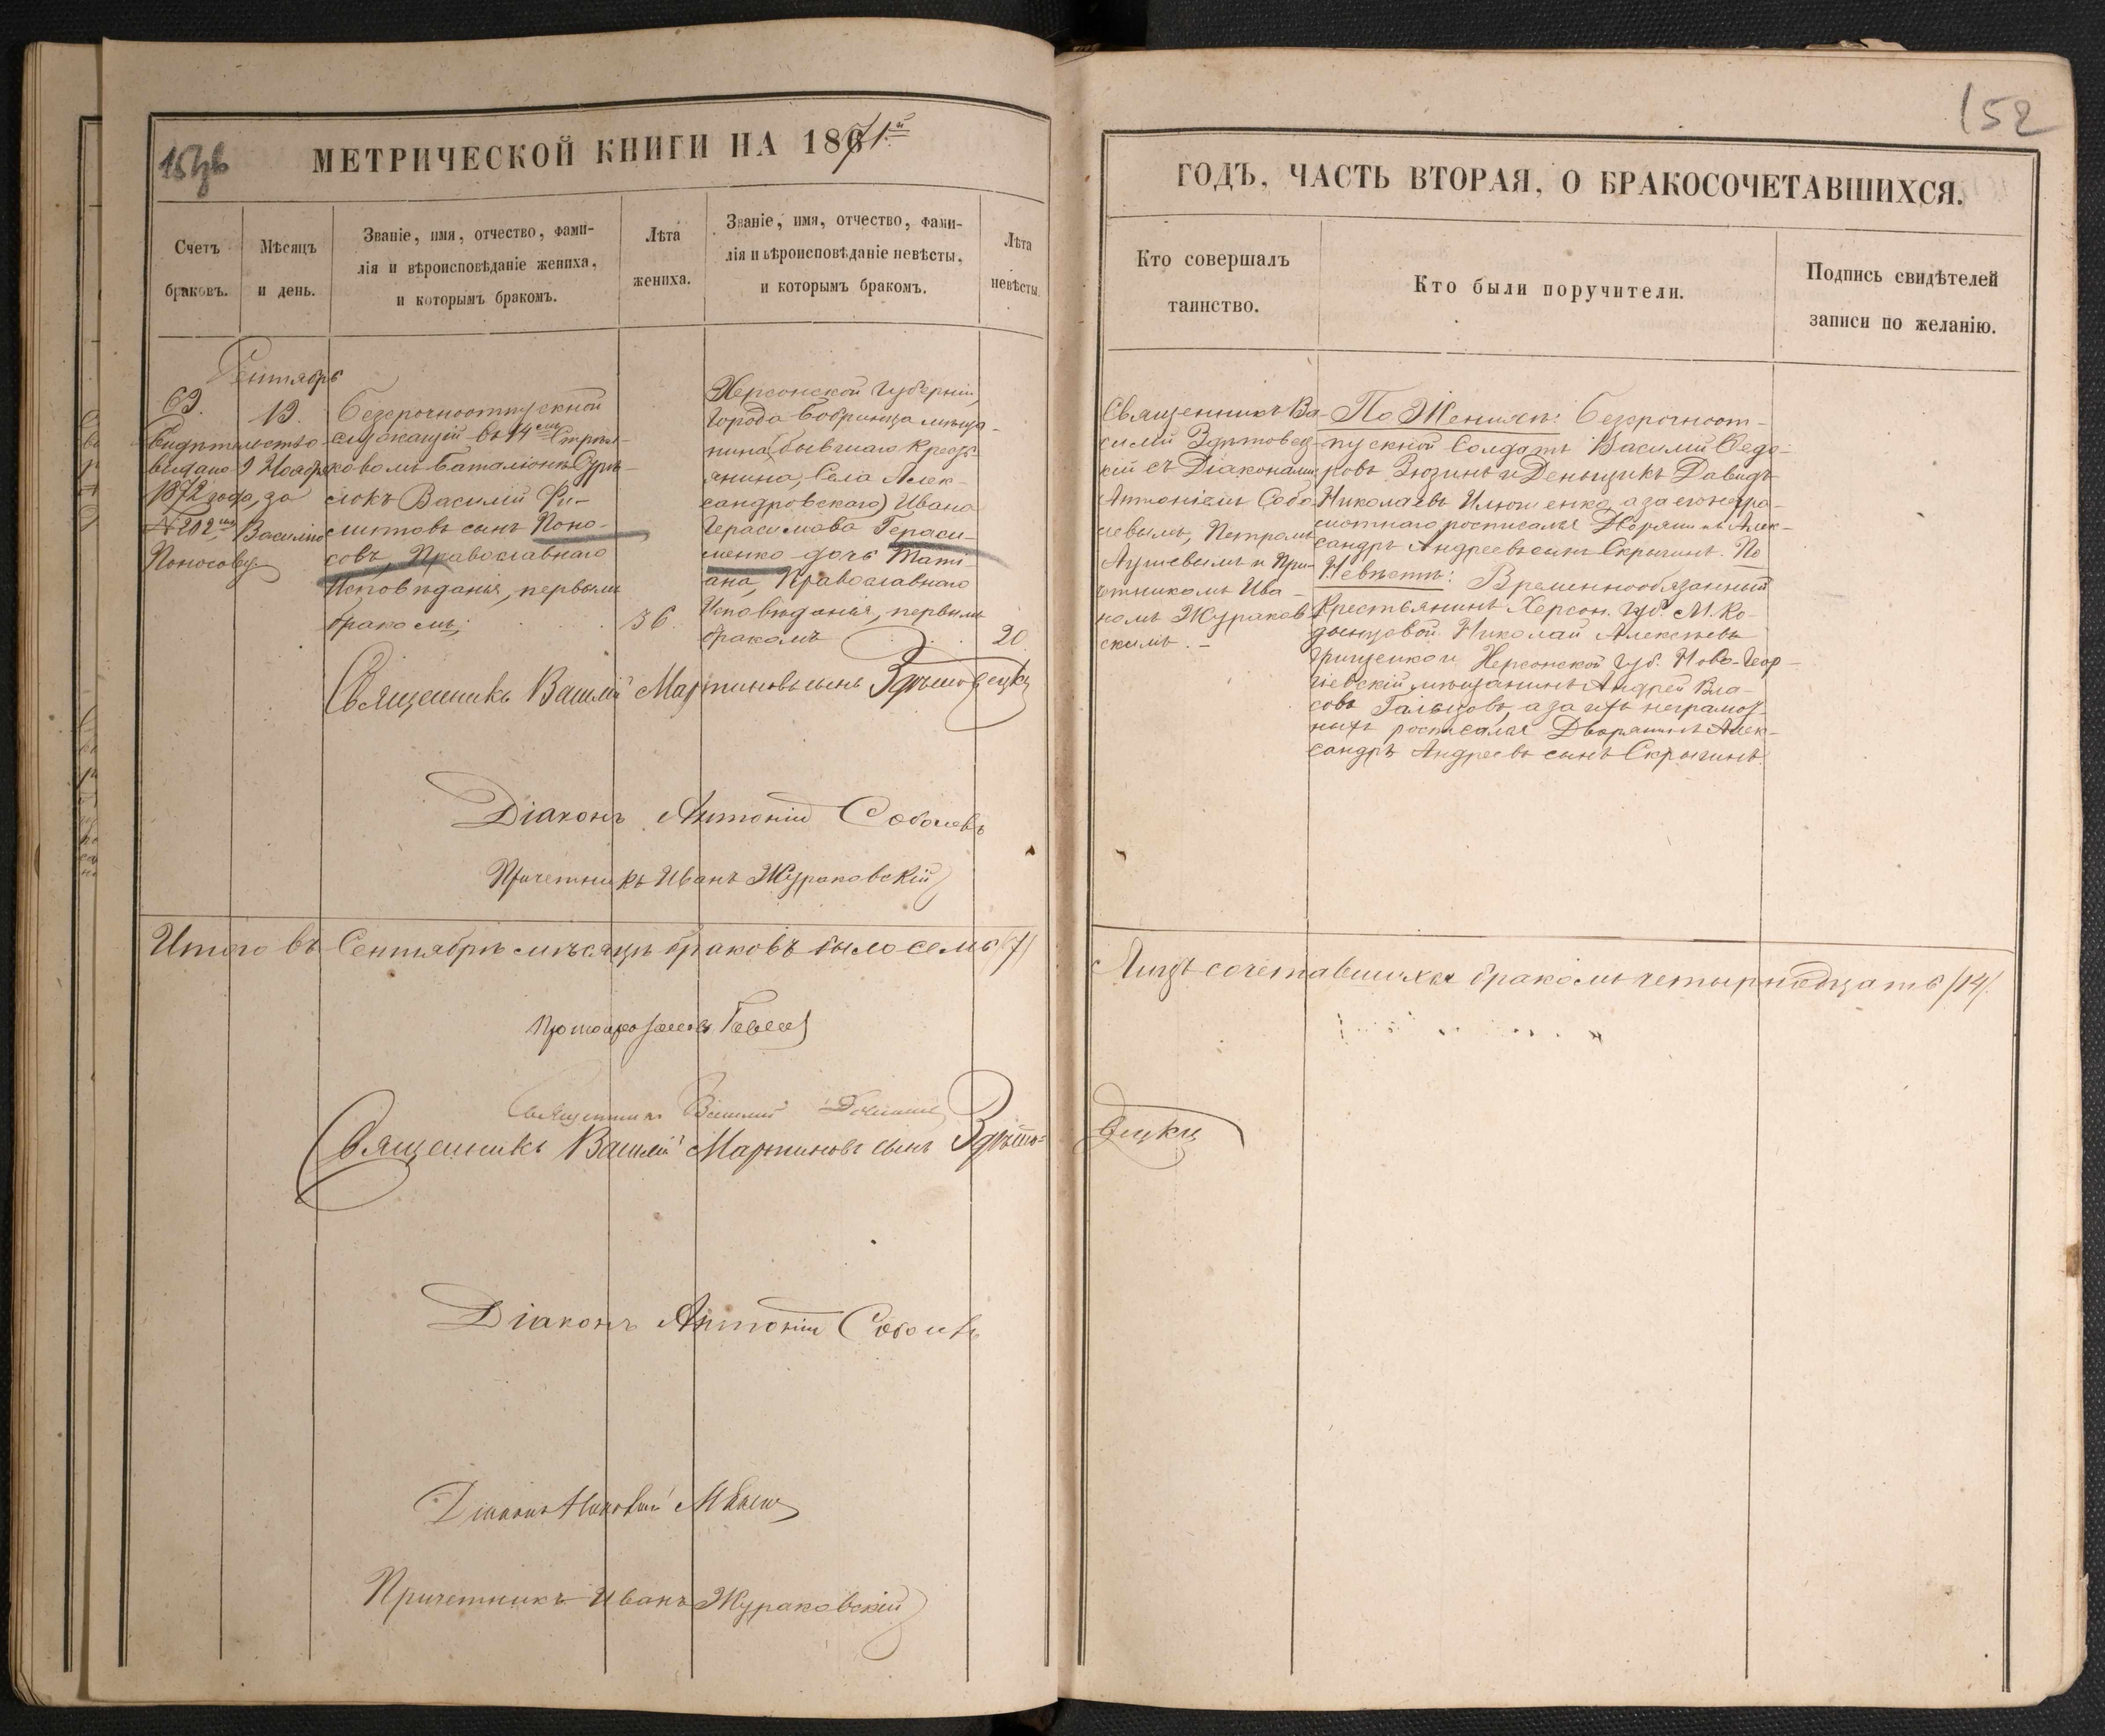 151об
МЕТРИЧЕСКОЙ КНИГИ НА 1871й
Счетъ
браковъ.
Мѣсяцъ
и день.
Званіе, имя, отчество, фами-
лія и вѣроисповѣданіе жениха,
и которымъ бракомъ.
Лѣта
жениха.
Званіе, имя, отчество, фами-
лія и вѣроисповѣданіе невѣсты,
и которымъ бракомъ.
Лѣта
невѣсты.
Сентябрь
69.
Свидѣтельство
выдано 9 Ноября
1872 года, за
№ 202 Василію
Поносову.
19.
Безсрочноотпускной
служащій въ 14 Стрѣл-
ковомъ баталіонѣ
Василій Фи-
липповъ сынъ Поно-
совъ, Православнаго
Исповѣданія, первымъ
бракомъ;
36.
Херсонской Губерніи,
города Бобринца мѣща-
нина (бывшаго Кресть-
янина, Села Алек-
сандровскаго) Ивана
Герасимова Гераси-
менко дочь Тати-
ана, Православнаго
Исповѣданія, первымъ
бракомъ
20.
Священникъ Василій Мартиновъ сынъ Здѣтовецкій
Діаконъ Антоній Соболевъ
Причетникъ Иванъ Жураковскій
Итого въ Сентябрѣ мѣсяцѣ браковъ было семь /7/
Священникъ Василій
Священникъ Василій Мартиновъ сынъ Здѣто-
Діаконъ Антоній Соболевъ
Діаконъ
Причетникъ Иванъ Жураковскій
152
ГОДЪ, ЧАСТЬ ВТОРАЯ, О БРАКОСОЧЕТАВШИХСЯ.
Кто совершалъ
таинство.
Кто были поручители.
Подпись свидѣтелей
записи по желанію.
Священникъ Ва-
силій Здѣтовец-
кій съ Діаконами
Антоніемъ Собо-
левымъ, Петромъ
и При-
четникомъ Ива-
номъ Жураков-
скимъ. –
По Женихѣ: безсрочноот-
пускной Солдатъ Василій Ѳедо-
ровъ Зюзинъ и Деньщикъ Давидъ
Николаевъ Илюшенко, а за его негра-
мотнаго росписался Дворянинъ Алек-
сандръ Андреевъ сынъ Скрыгинъ. По
Невѣстѣ: Временнообязанный
Крестьянинъ Херсон. Губ. М. Ко-
Николай Алексѣевъ
Грищенко и Херсонской Губ. Ново-Геор-
гіевскій мѣщанинъ Андрей Вла-
совъ Гальцовъ, а за ихъ неграмот-
ныхъ росписался Дворянинъ Алек-
сандръ Андреевъ сынъ Скрыгинъ.
Лицъ сочетавшихся бракомъ четырнадцать /14/.
вецкій